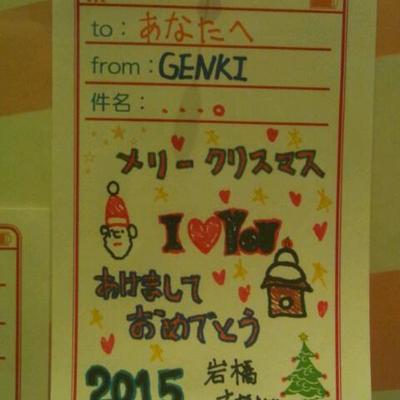 to：あなたへ
from：GENKI
件名：...。
メリークリスマス
I ♥ You
あけまして
おめでとう
2015
岩橋